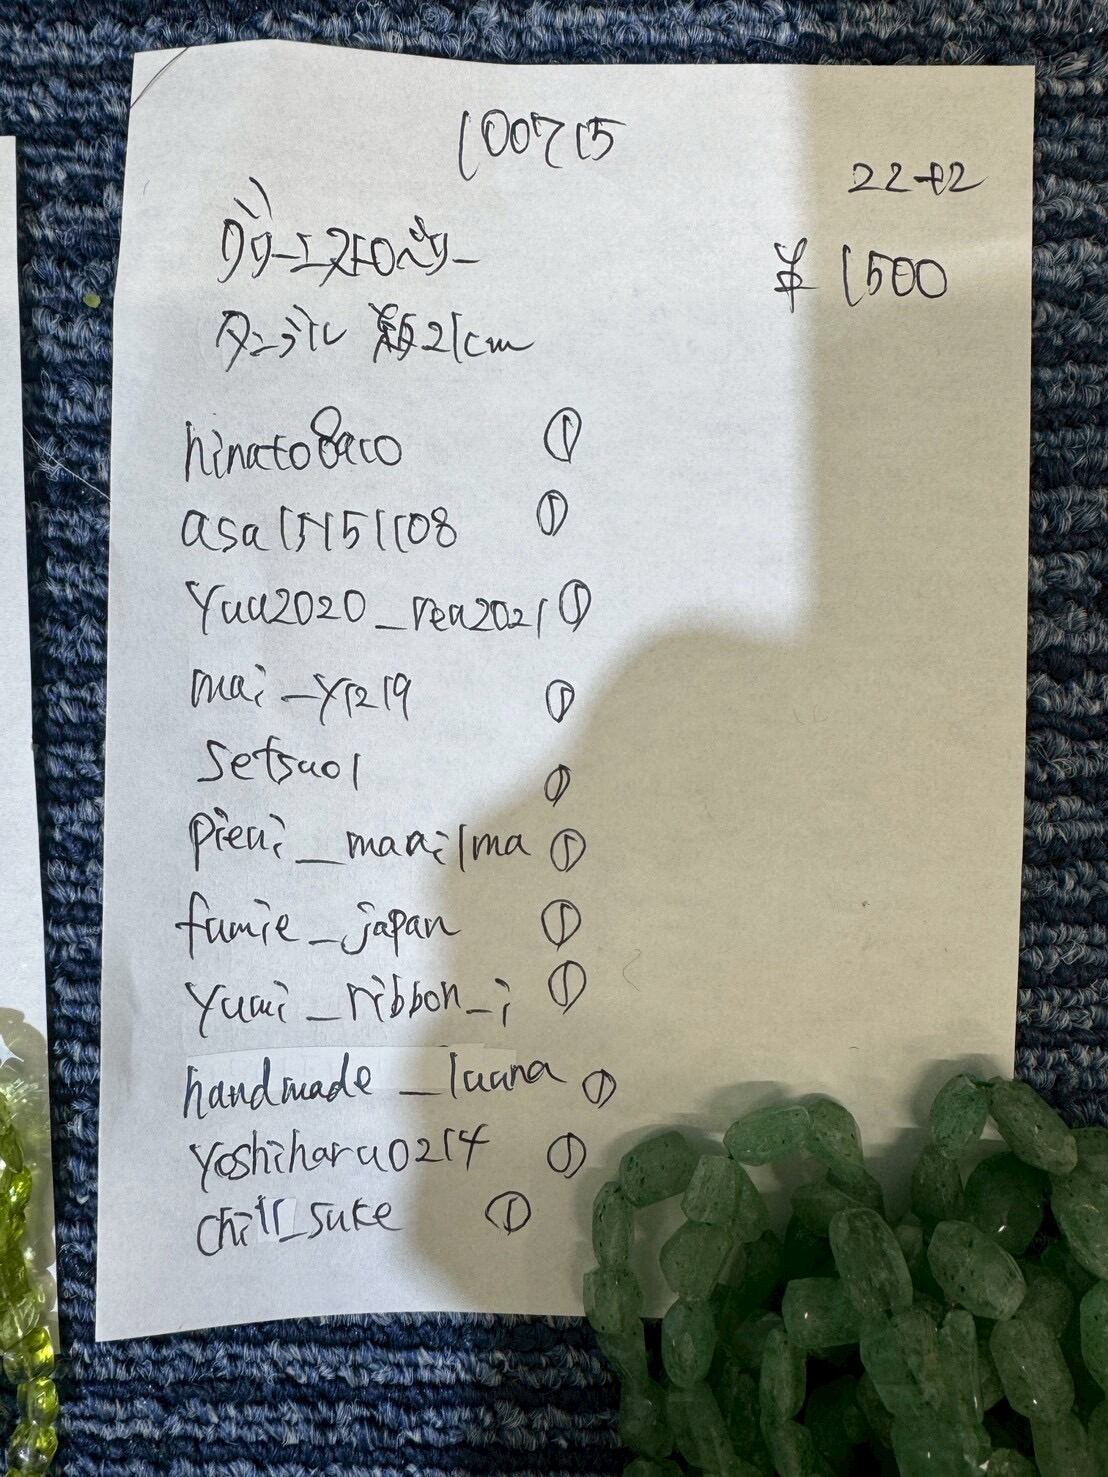 100715
22-42
グリーンエストロベリー
¥1500
タンブル 約21cm
hinato8aco ①
asa15151108 ①
Yuu2020_rea2021 ①
mai_y1219 ①
Setsuo1 ①
pieni_maailma ①
fumie_japan ①
yumi_ribbon_i ①
handmade_luuna ①
yoshiharu0214 ①
chill_suke ①